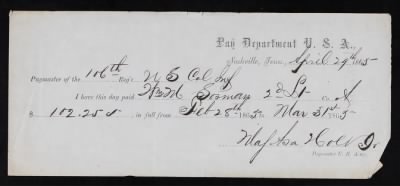 Pay Department U. S. A.,
Nashville, Tenn., April 29th 1865
Paymaster of the 106th Reg't U S Col Inf
I have this day paid Wm M 2d Lt Co. A
$ 102.25 in full from Feb 28th 1865 to Mar 31st 1865
Maj Asa Holt Jr
Paymaster U. S. Army.